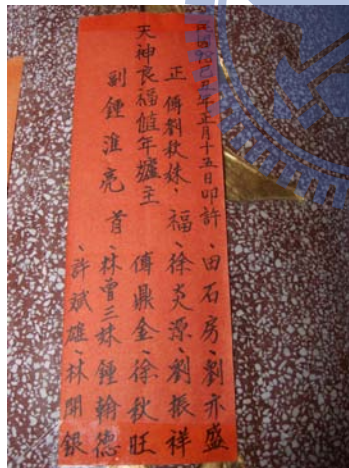 己丑年正月十五日叩許、田石房、劉亦盛
正 傅劉秋妹、福、徐炎源、劉振祥
天神良福值年爐主 傅鼎金、徐秋旺
副 鍾淮亮 首、林曾三妹 鍾翰德
、許斌雄、林開銀